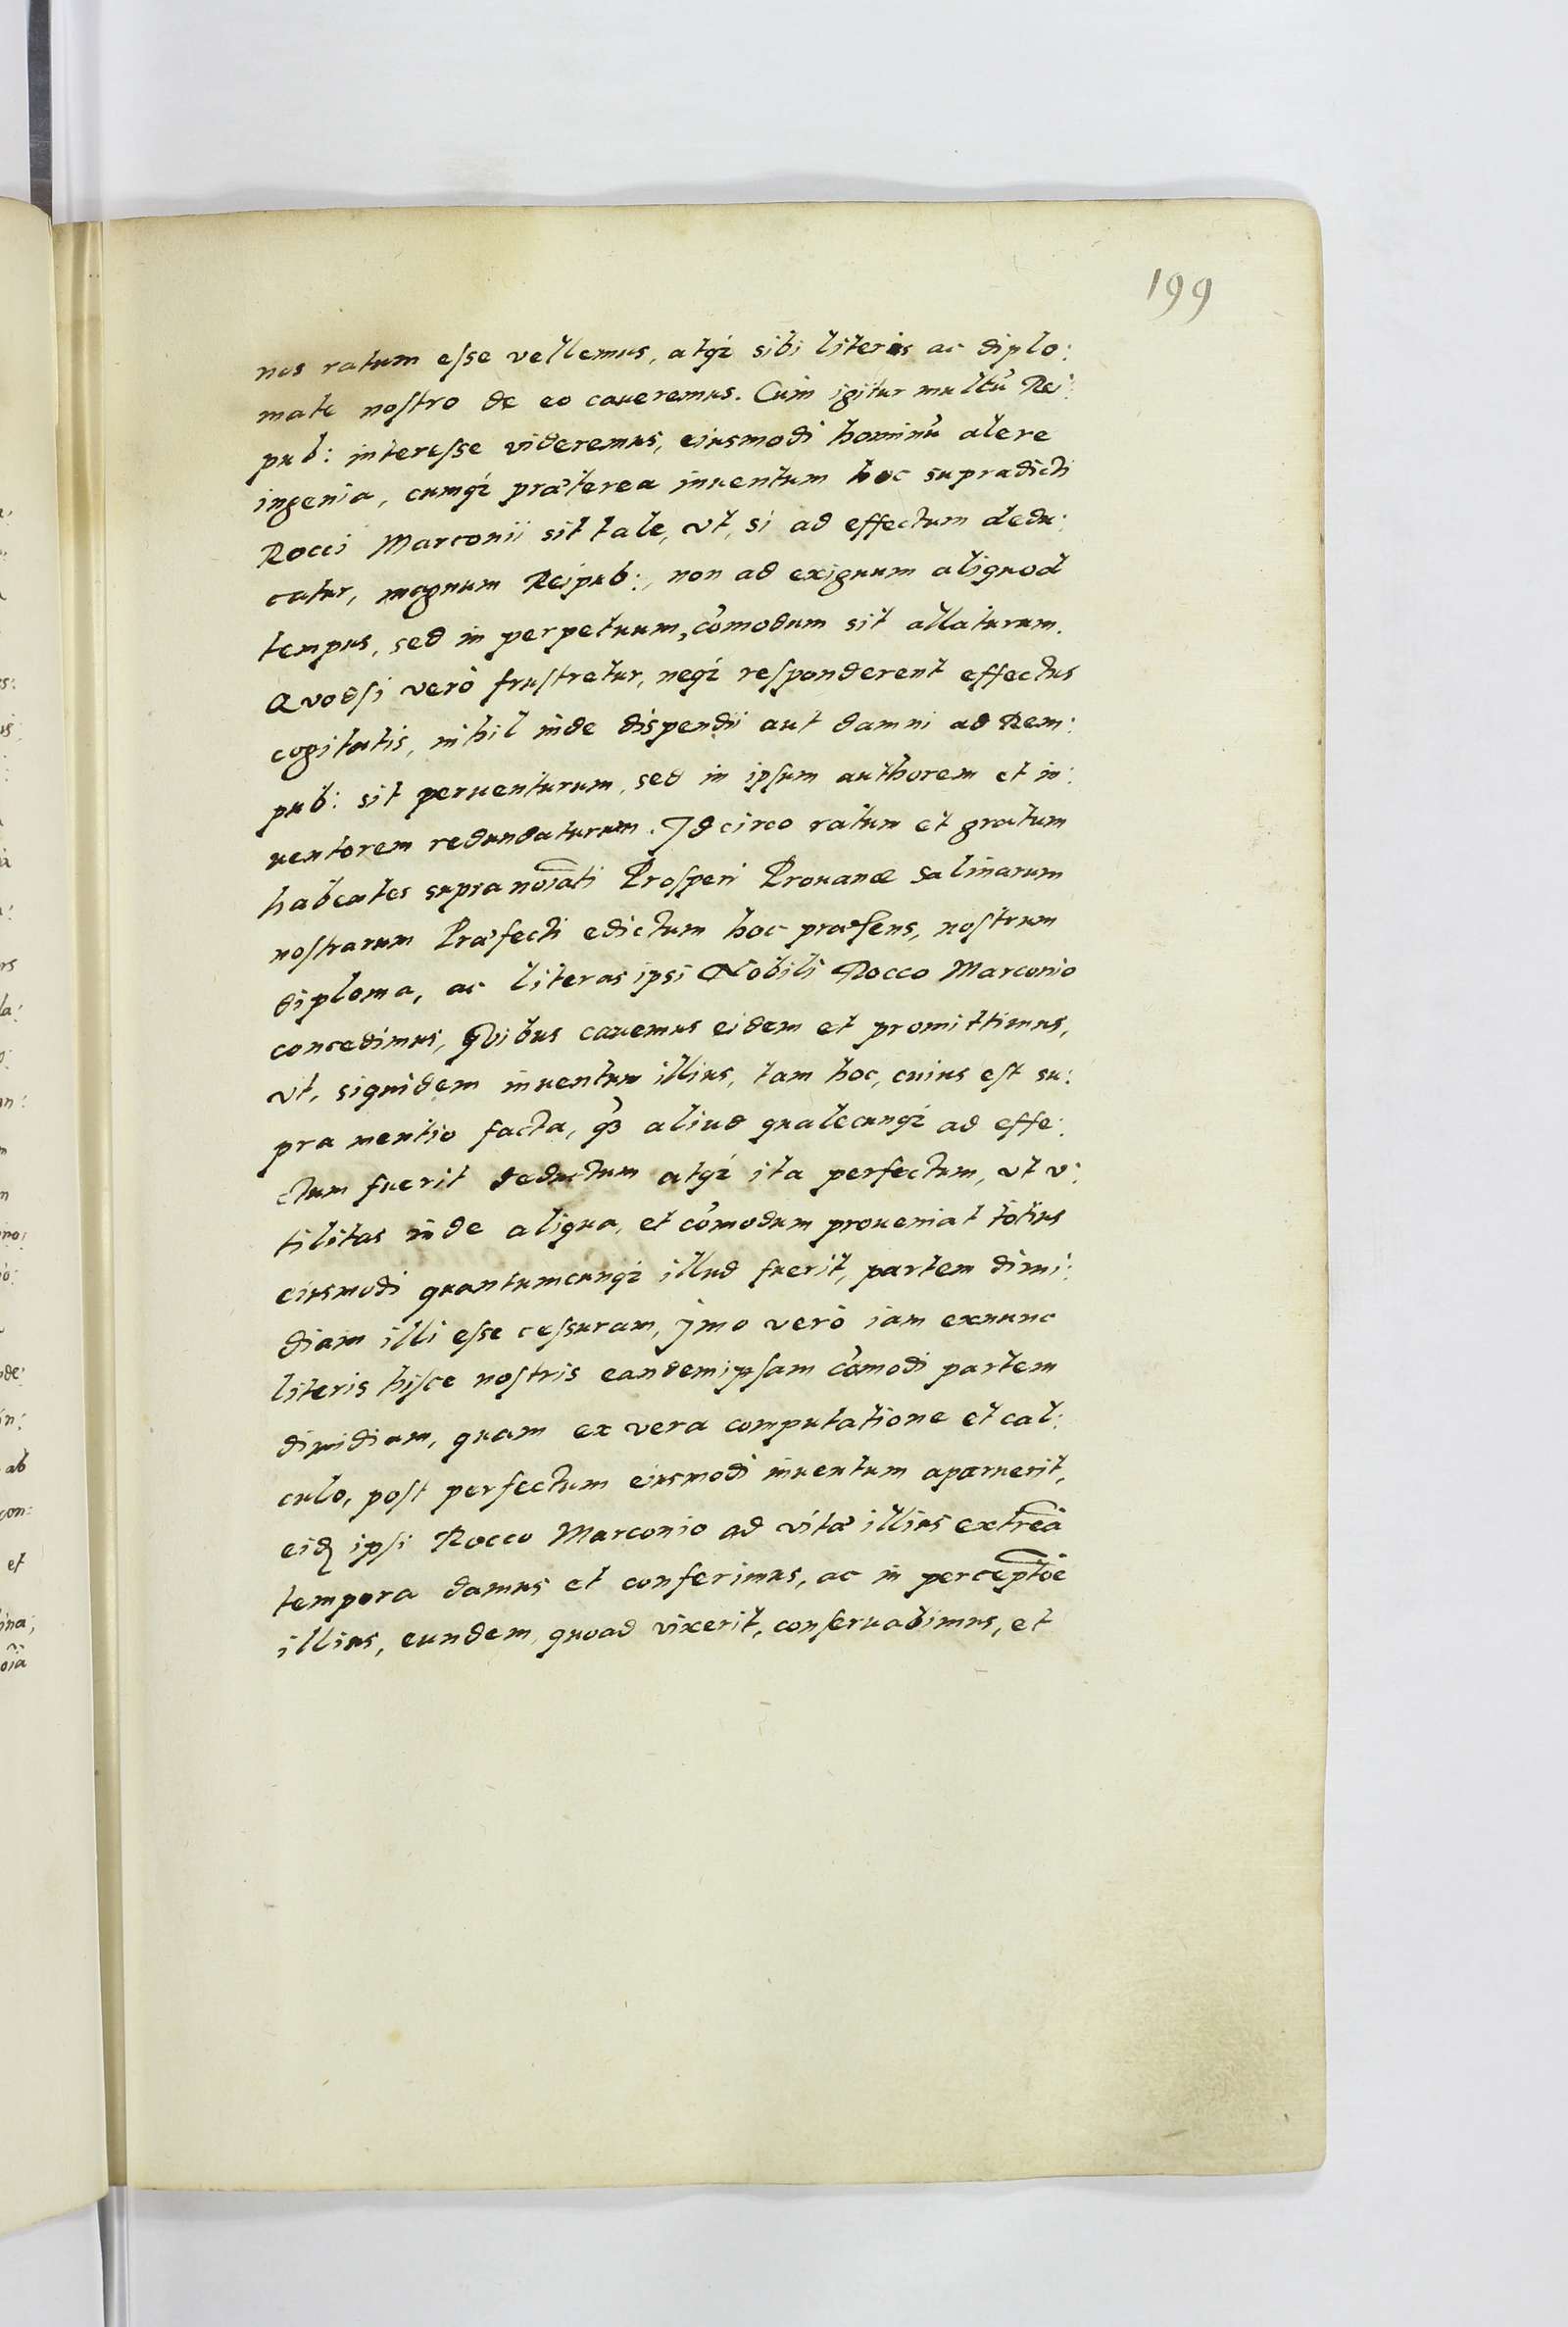 199
nos ratum esse vellemus, atqȝ sibi literis ac diplo:
mate nostro de eo caueremus. Cum igitur multũ Rei:
pub: interesse videremus, eiusmodi hominũ alere
ingenia, cumqȝ præterea inuentum hoc supradicti
Rocci Marconii sit tale, vt, si ad effectum dedu:
catur, magnum Reipub:, non ad exiguum aliquod
tempus, sed in perpetuum, cõmodum sit allaturum.
Quodsi verò frustretur, neqȝ responderent effectus
cogitatis, nihil inde dispendii aut damni ad Rem:
pub: sit peruenturum, sed in ipsum authorem et in:
uentorem redundaturum. Idcirco ratum et gratum
habentes supranoĩati Prosperi Prouanæ Salinarum
nostrarum Præfecti edictum hoc præsens, nostrum
diploma, ac literas ipsi Nobili Rocco Marconio
concedimus, Quibus cauemus eidem et promittimus,
vt, siquidem inuentum illius, tam hoc, cuius est su:
pra mentio facta, qȝ aliud qualecunqȝ ad effe:
ctum fuerit deductum atqȝ ita perfectum, vt v:
tilitas inde aliqua, et cõmodum proueniat totius
eiusmodi quantumcunqȝ illud fuerit, partem dimi:
diam illi esse cessuram, Jmo verò iam exnunc
literis hisce nostris eandemipsam cõmodi partem
dimidiam, quam ex vera computatione et cal:
culo, post perfectum eiusmodi inuentum aparuerit,
eidꝫ ipsi Rocco Marconio ad vitæ illius extrẽa
tempora damus et conferimus, ac in perceptõe
illius, eundem, quoad vixerit, conseruabimus, et